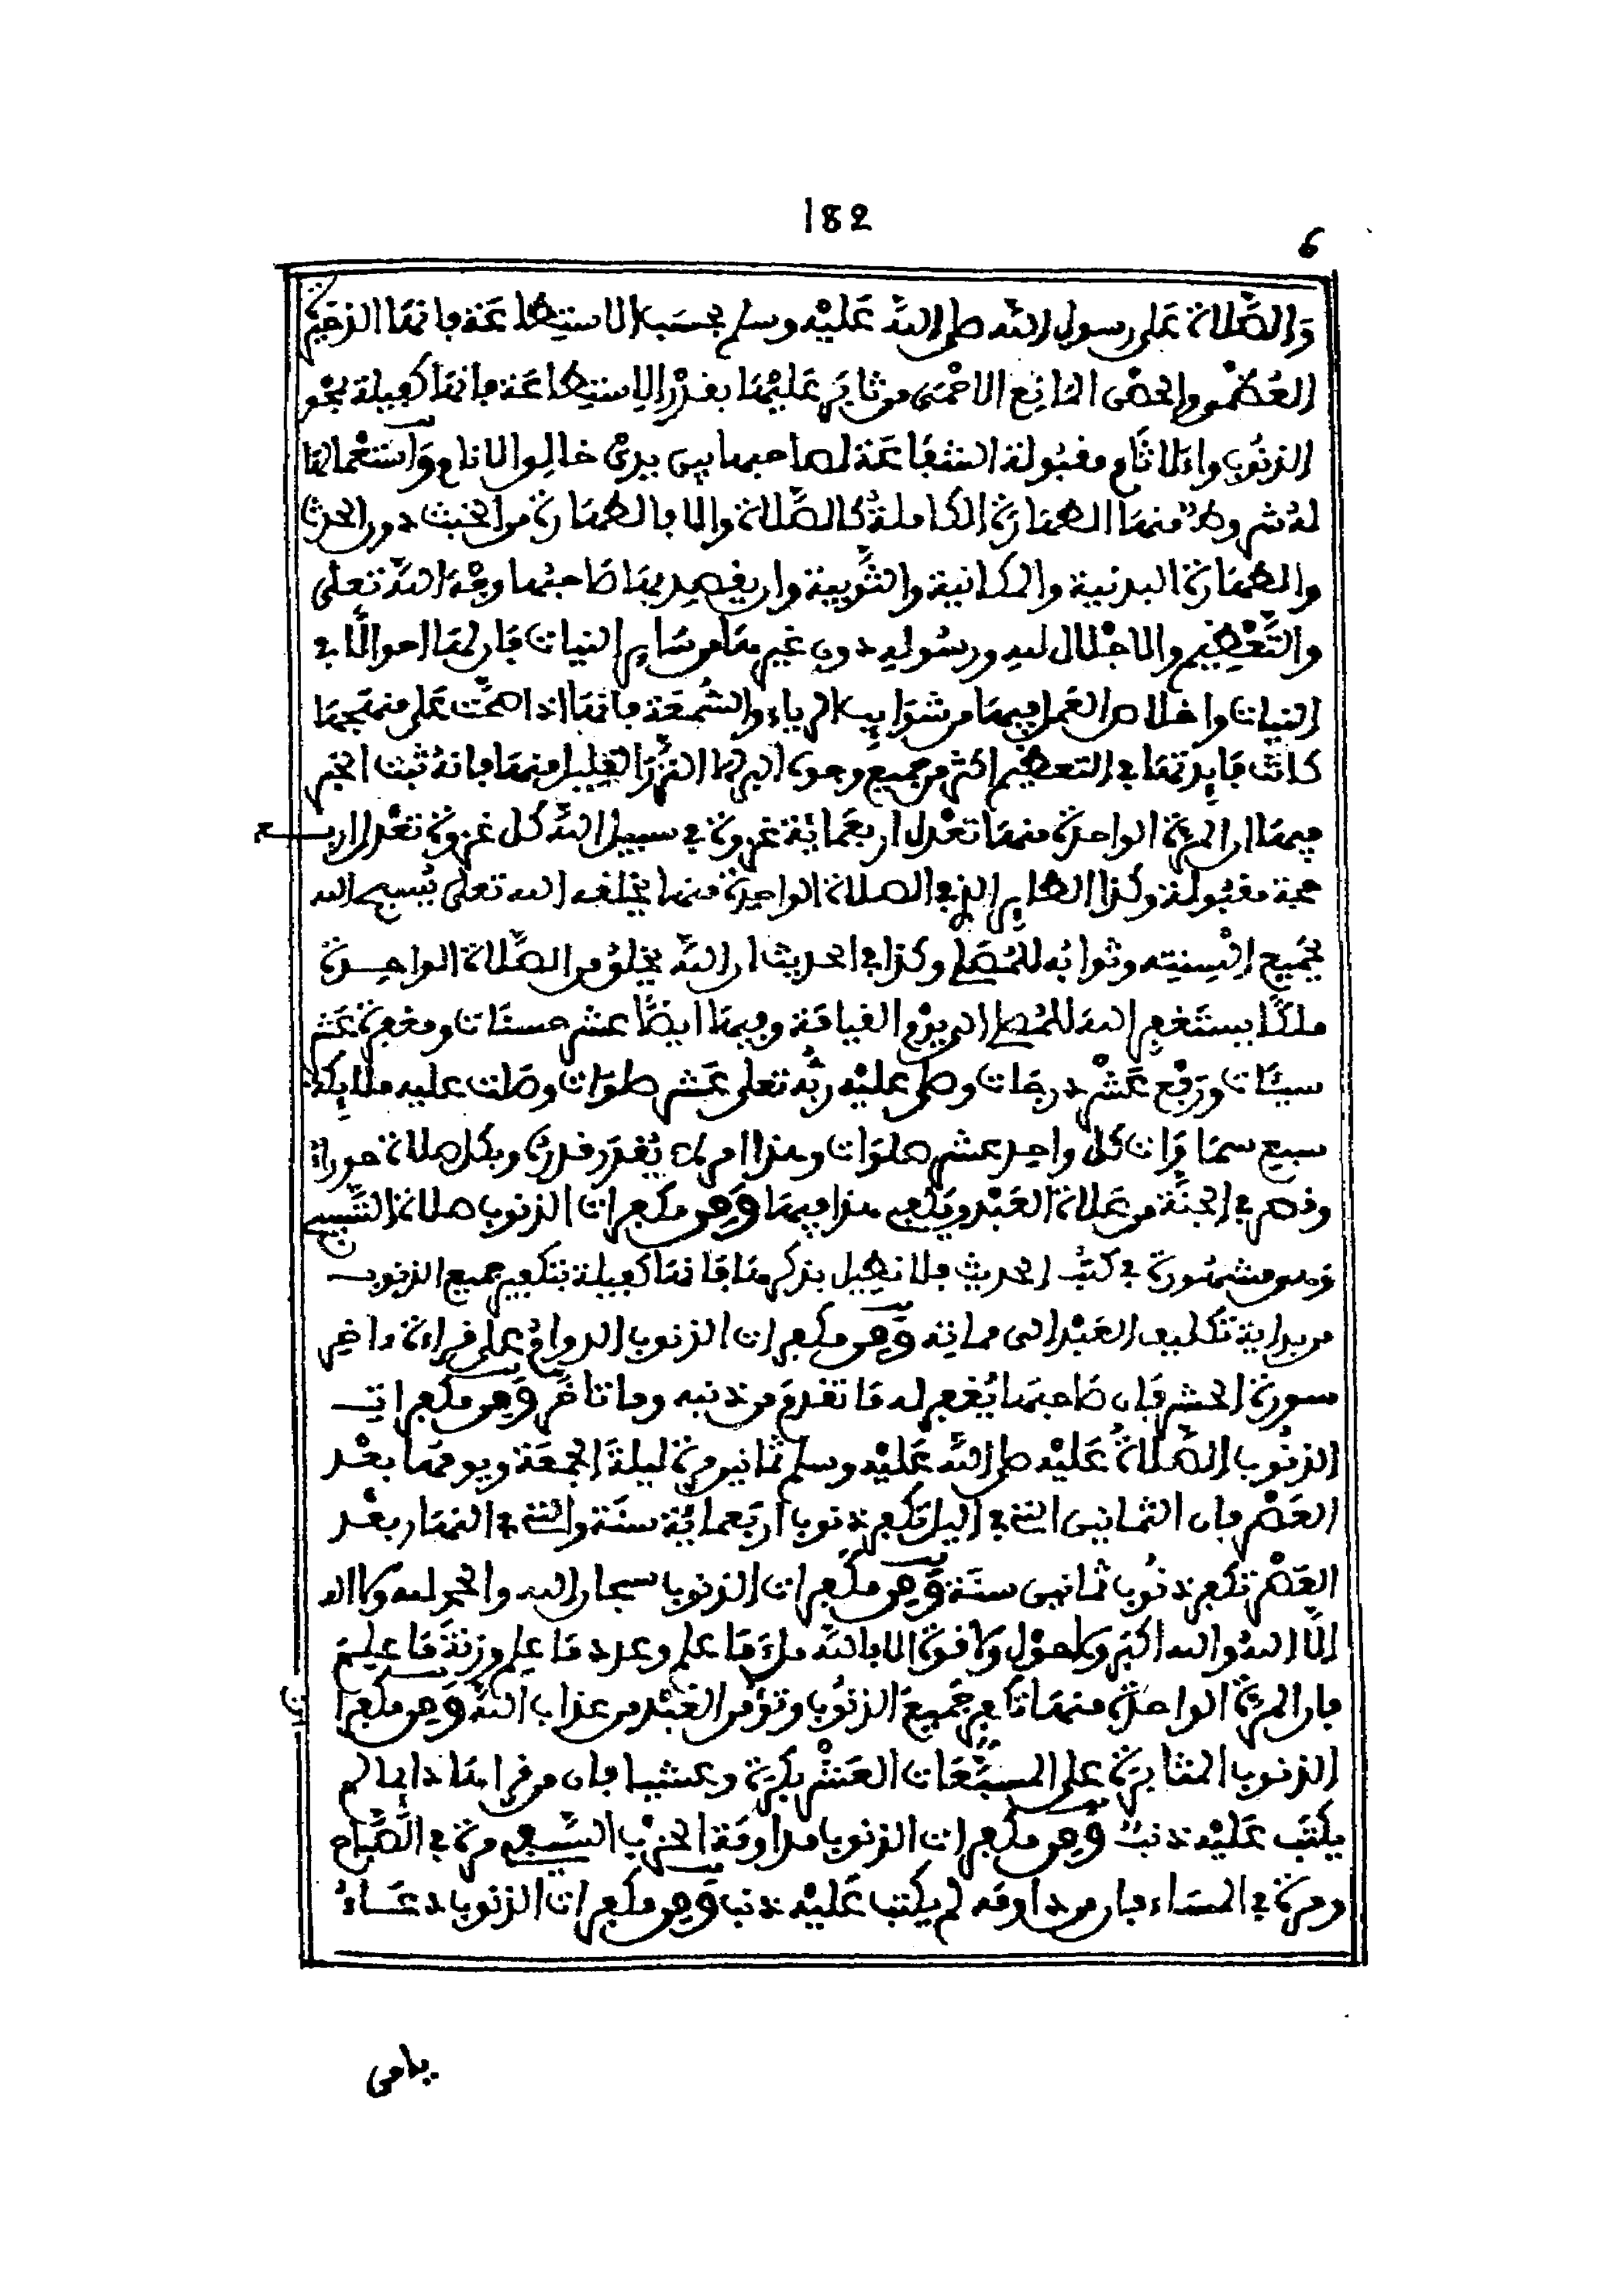 182
6
وَالصَّلَاة عَلى رسول اللَّه صلى اللَّه عَلَيْه وسلم بحسَب الاستطاعَة فإنهَا الذخيرة
العُظْمى والحصْن المانِع الاحْمَى من ثابَر عَليْهَا بقدْر الاستطاعَة فإنهَا كفيلة بمحو
الذنُوب وازالة الاثَام مقبُولة الشفَاعَة لصاحبها بين يدىْ خالِق الانام وَاسْتعْمالها
لهُ شروط منهَا الطهَارَة الكاملة كالصَّلاة والا بالطهَارة من الخبث دون الحدث
والطهَارة البدنية والمكانية والثَّوبية وان يقصد بهَا صَاحبُها وجْهَ اللَّه تعلى
والتَّعْظِيم والاجْلال لهِ ورسُولهِ دون غيرهَا من سَاير النيات فإن لهَا احوالًا فى
النيات واخلاص العَمل فيهَا من شوَايب الرياء والسُّمعَة فإنهَا اذا صحَّت عَلى منهَجهَا
كانت فَايِدتهَا فى التعظيم اكثر من جميع وجوه البر الا النَّزْرَ القليل منهَا فإنهُ ثبت الخبر
فيهَا ان المرة الواحدة منهَا تعْدل اربعَمائة غزوة فى سبيل اللَّه كل غزوة تعْدل اربع
حجة مقبُولة وكذا الطاير الذى الصلاة الواحِدة منها يخلقه الله تعلى يُسبح الله
بجَميع اَلْسِنتِه وثوابُه للمُصَلى وكذا فى الحديث ان اللَّه يخلق من الصَّلاة الواحِدة
ملكًا يستَغفِر الله للمُصلى الى يوْم القيامَة وفيهَا ايضًا عشر حسنَات ومغفرة عَشر
سيئَات ورَفْع عَشْر درجَات وصلى عليْه ربُّه تعلى عَشر صلوَات وصَلت عليه ملائِكة
سبع سمَاوَات كل واحِد عشر صلوَات وهذا امر لا يُقدَر قدرة وبكل صلاة حوراء
وقصر فى الجنَّة من صَلاة العَبْد ويَكفى هذا فيهَا وَمِن مكفرات الذنوب صلاة التَّسبيح
وهى مشهُورة فى كتُب الحديث فلا نطيل بذكرهَا فَإنهَا كفيلة بتكفير جميع الذنوب
من بداية تكليف العَبْد الى مماته وَمِن مكفرات الذنوب الدوام على قراءة ءاخر
سورة الحشر فَإن صَاحبهَا يُغفر له مَا تقدم من ذنبه وما تاخر وَمِن مكفرات
الذنُوب الصَّلاةُ عَليْه صلى اللَّه عَليْه وسلم ثمَانين مرة ليلةَ الجمعَة ويومهَا بعْد
العَصْر فإن الثمانين التى فى اليل تكفر ذنوب اربَعمائة سنَة والتى فى النهَار بعْد
العَصْر تكفر ذنُوب ثمانين سنَة وَمِن مكفرات الذنوب سبحان الله والحمد لله ولا اله
الّا اللهُ والله اكبَر ولا حوْل وَلا قوة الا بالله ملءَ مَا علم وعدد مَا علِم وزِنةَ مَا علِم
فإن المرة الواحدة منهَا تكفر جَميعَ الذنُوب وتؤمّن العَبْد من عذاب اللَّه وَمِن مكفرات
الذنوب المثابرة على المسبَّعَات العَشْر بكرة وعشيا فإن من قراهَا دايما لم
يكتَب عَليْه ذنبٌ وَمِن مكفرات الذنوب مداومَة الحزب السَّيفى مرة فى الصَّباح
ومرة فى المسَاء فإن من داومَه لم يكتب عَليْه ذنب وَمِن مكفرات الذنوب دعَاءُ
يامن